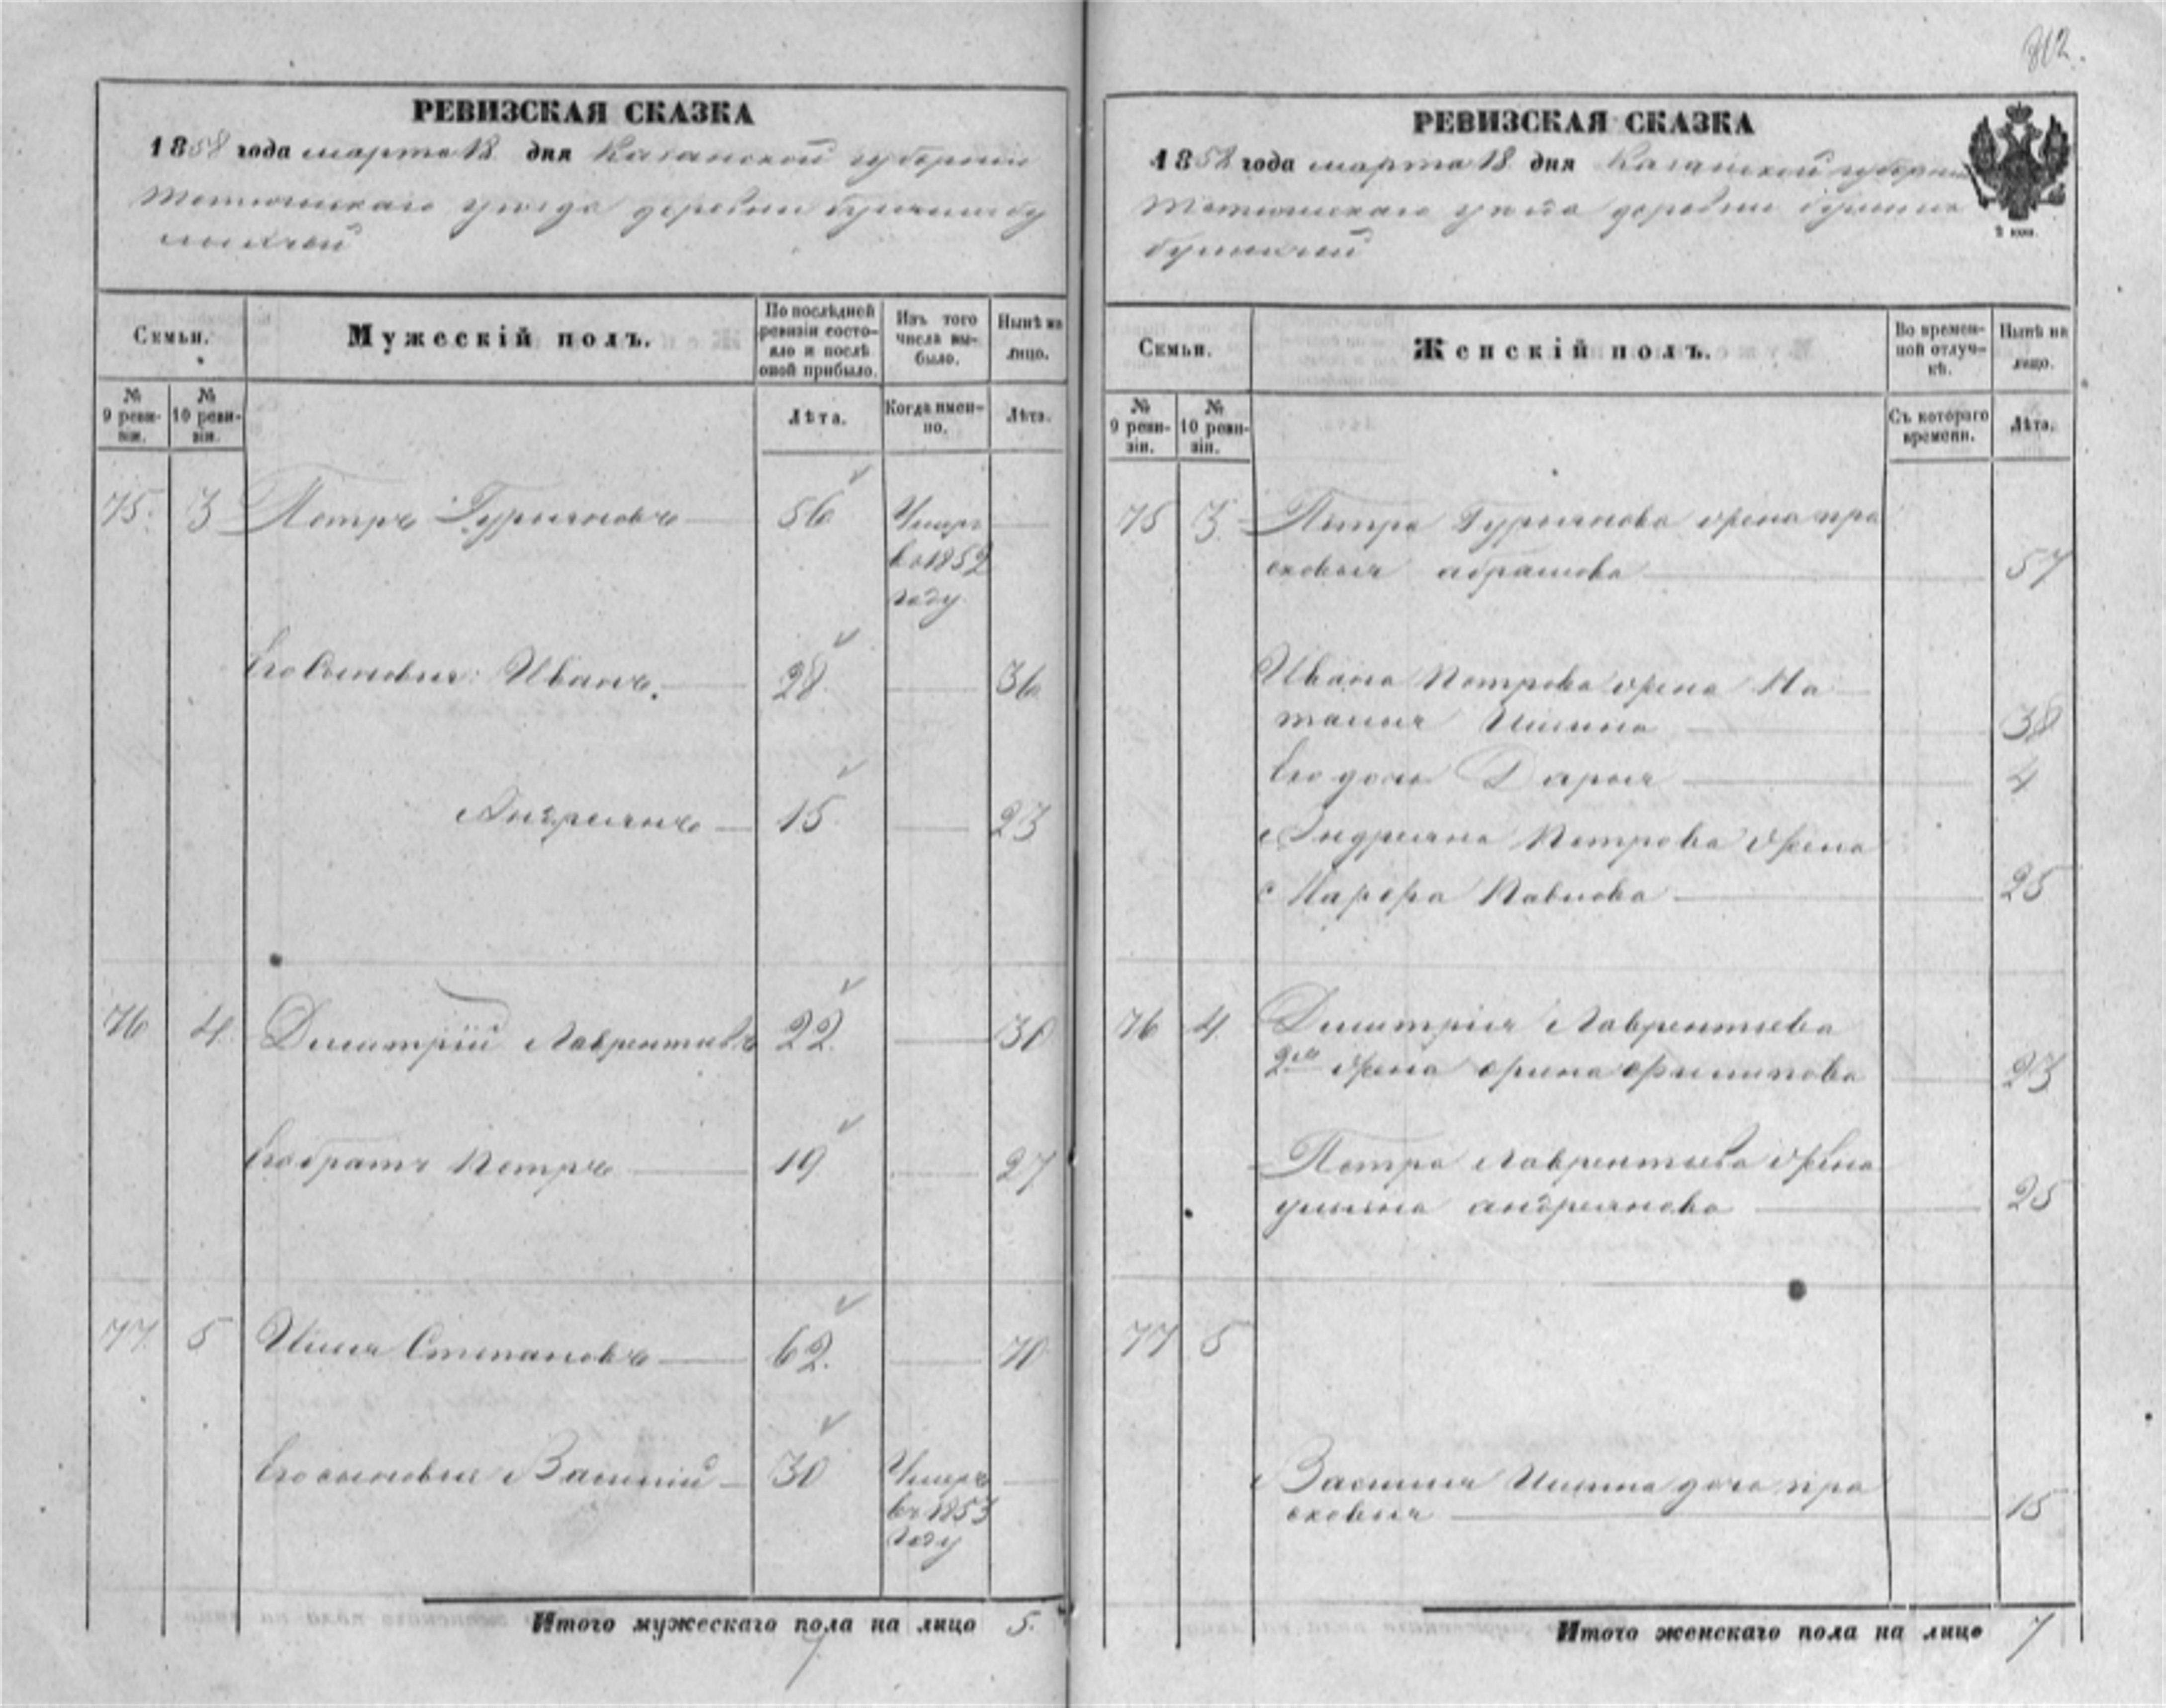 812.
РЕВИЗСКАЯ СКАЗКА
1858 года марта 18 дня Казанской губернии
Тетюшскаго уѣзда деревни
Семьи.
Мужескій полъ.
По послѣдней ревизіи состояло и послѣ оной прибыло.
Изъ того числа выбыло.
Нынѣ на лицо.
№ 9 ревизіи.
№ 10 ревизіи.
Лѣта.
Когда именно.
Лѣта.
75. 3 Петръ Гурьяновъ 56 Умеръ
въ 1852
году
Его сыновья: Иванъ. 28. 36
Андреянъ 15. 23
76 4. Дмитрій Лаврентьевъ 22. 30
Его братъ Петръ 19 27
77 5 Илья Степановъ 62. 70
Его сыновья Василій 30 Умеръ
въ 1853
году
Итого мужескаго пола на лицо 5.
7
РЕВИЗСКАЯ СКАЗКА
1858 года марта 18 дня Казанской губерніи
Тетюшскаго уѣзда деревни
2 коп.
Семьи.
Женскій полъ.
Во временной отлучкѣ.
Нынѣ на лицо.
№ 9 ревизіи.
№ 10 ревизіи.
Съ котораго времени.
Лѣта.
75 3. Петра Гурьянова жена пра
сковья абрамова 57
Ивана Петрова жена На
талья Ильина 38
Его дочь Дарья 4
Андреяна Петрова жена
Марфа Павлова 25
76 4 Дмитрія Лаврентьева
2я жена орина филипова 23
Петра Лаврентьева жена
ульяна андреянова 25
77 5
Василья Ильина дочь пра
сковья 15
Итого женскаго пола на лицо 7